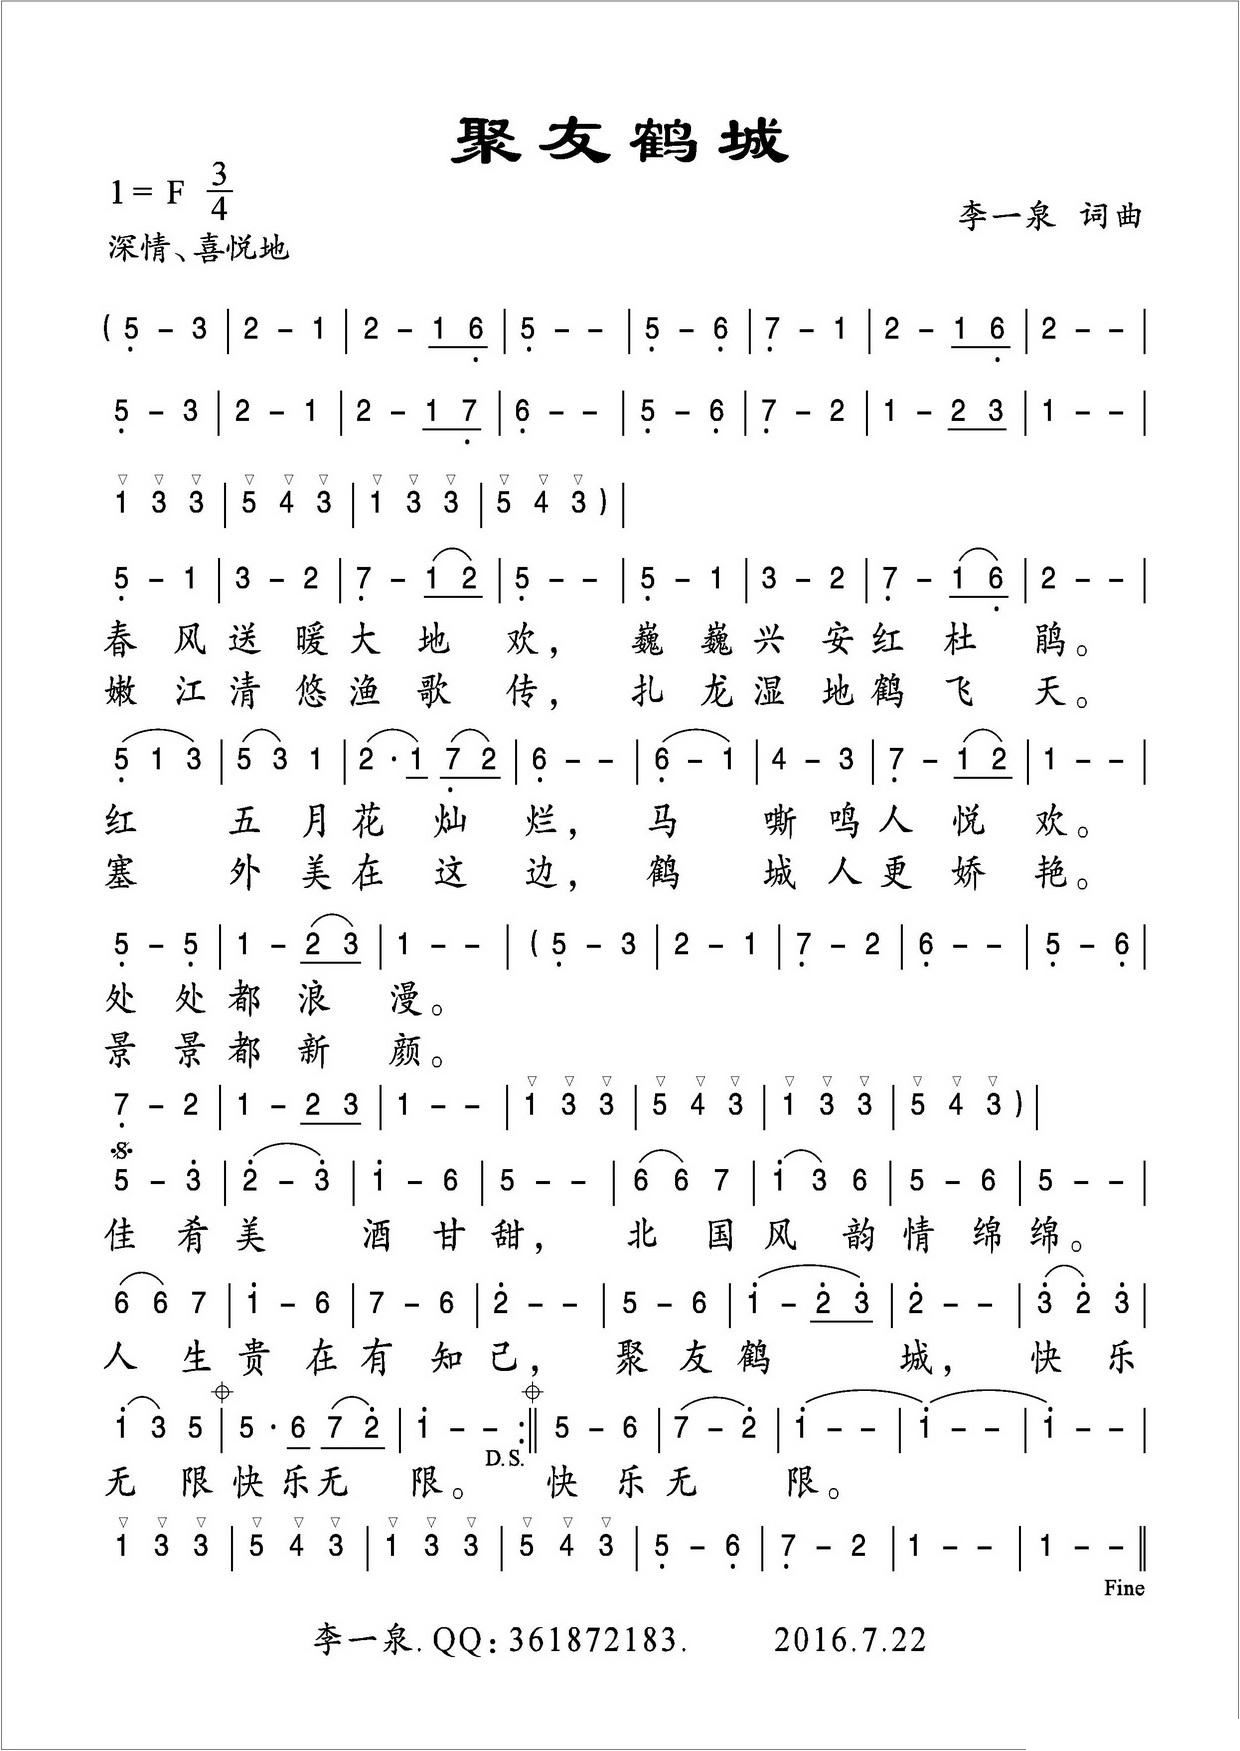 聚友鹤城
1= F 3/4
李一泉 词曲
深情、喜悦地
( 5 – 3 | 2 – 1 | 2 – 1 6 | 5 – – | 5 – 6 | 7 – 1 | 2 – 1 6 | 2 – – |
5 – 3 | 2 – 1 | 2 – 1 7 | 6 – – | 5 – 6 | 7 – 2 | 1 – 2 3 | 1 – – |
1 3 3 | 5 4 3 | 1 3 3 | 5 4 3 ) |
5 – 1 | 3 – 2 | 7 – 1 2 | 5 – – | 5 – 1 | 3 – 2 | 7 – 1 6 | 2 – – |
春风送暖大地欢，巍巍兴安红杜鹃。
嫩江清悠渔歌传，扎龙湿地鹤飞天。
5 1 3 | 5 3 1 | 2 · 1 7 2 | 6 – – | 6 – 1 | 4 – 3 | 7 – 1 2 | 1 – – |
红五月花灿烂，马嘶鸣人悦欢。
塞外美在这边，鹤城人更娇艳。
5 – 5 | 1 – 2 3 | 1 – – | ( 5 – 3 | 2 – 1 | 7 – 2 | 6 – – | 5 – 6 |
处处都浪漫。
景景都新颜。
7 – 2 | 1 – 2 3 | 1 – – | 1 3 3 | 5 4 3 | 1 3 3 | 5 4 3 ) |
5 – 3 | 2 – 3 | 1 – 6 | 5 – – | 6 6 7 | 1 3 6 | 5 – 6 | 5 – – |
佳肴美酒甘甜，北国风韵情绵绵。
6 6 7 | 1 – 6 | 7 – 6 | 2 – – | 5 – 6 | 1 – 2 3 | 2 – – | 3 2 3 |
人生贵在有知己，聚友鹤城，快乐
1 3 5 | 5 · 6 7 2 | 1 – – :‖ 5 – 6 | 7 – 2 | 1 – – | 1 – – | 1 – – |
D.S.
无限快乐无限。快乐无限。
1 3 3 | 5 4 3 | 1 3 3 | 5 4 3 | 5 – 6 | 7 – 2 | 1 – – | 1 – – ‖
Fine
李一泉.QQ:361872183. 2016.7.22